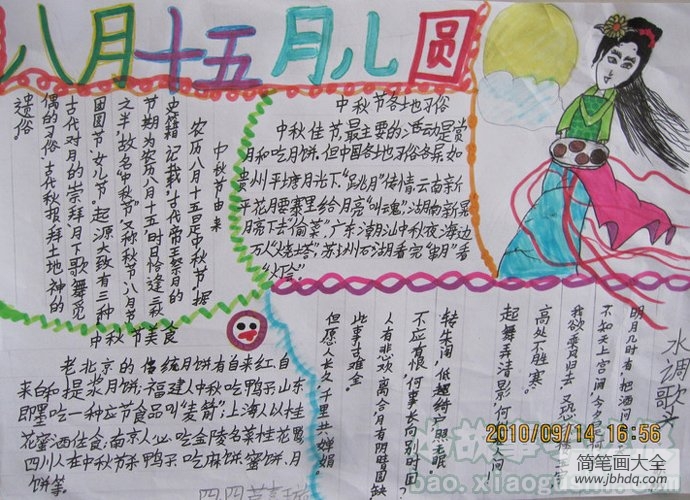 八月十五月儿圆
中秋节由来
农历八月十五是中秋节。据
史籍记载,古代帝王祭月的
节期为农历八月十五,时日恰逢三秋
之半,故名“中秋节”又称秋节、八月节
团圆节、女儿节。起源大致有三种
古代对月的崇拜、月下歌舞觅
偶的习俗,古代秋报拜土地神的
遗俗。
中秋节各地习俗
中秋佳节,最主要的活动是赏
月和吃月饼。但中国各地习俗各异,如
贵州平塘月光下“跳月”传情,云南新
平花腰寨里给月亮“叫魂”,湖南新晃
月亮下去“偷菜”,广东潮汕中秋夜海边
万人“烧塔”,苏州石湖看完“串月”看
中秋节美食
老北京的传统月饼有自来红、自
来白和提浆月饼;福建人中秋吃鸭子,山东
即墨吃一种应节食品叫“麦箭”;上海人以桂
花蜜酒佐食,南京人必吃金陵名菜桂花鸭
四川人在中秋节杀鸭子、吃麻饼、蜜饼、月
饼等。
水调歌头
明月几时有,把酒问
不知天上宫阙,今夕
我欲乘风归去,又恐
高处不胜寒。
起舞弄清影,何
转朱阁,低绮户,照无眠。
不应有恨,何事长向别时圆?
人有悲欢离合,月有阴晴圆缺
此事古难全。
但愿人长久,千里共婵娟
2010/09/14 16:56
简笔画大全
www.jbhdq.com